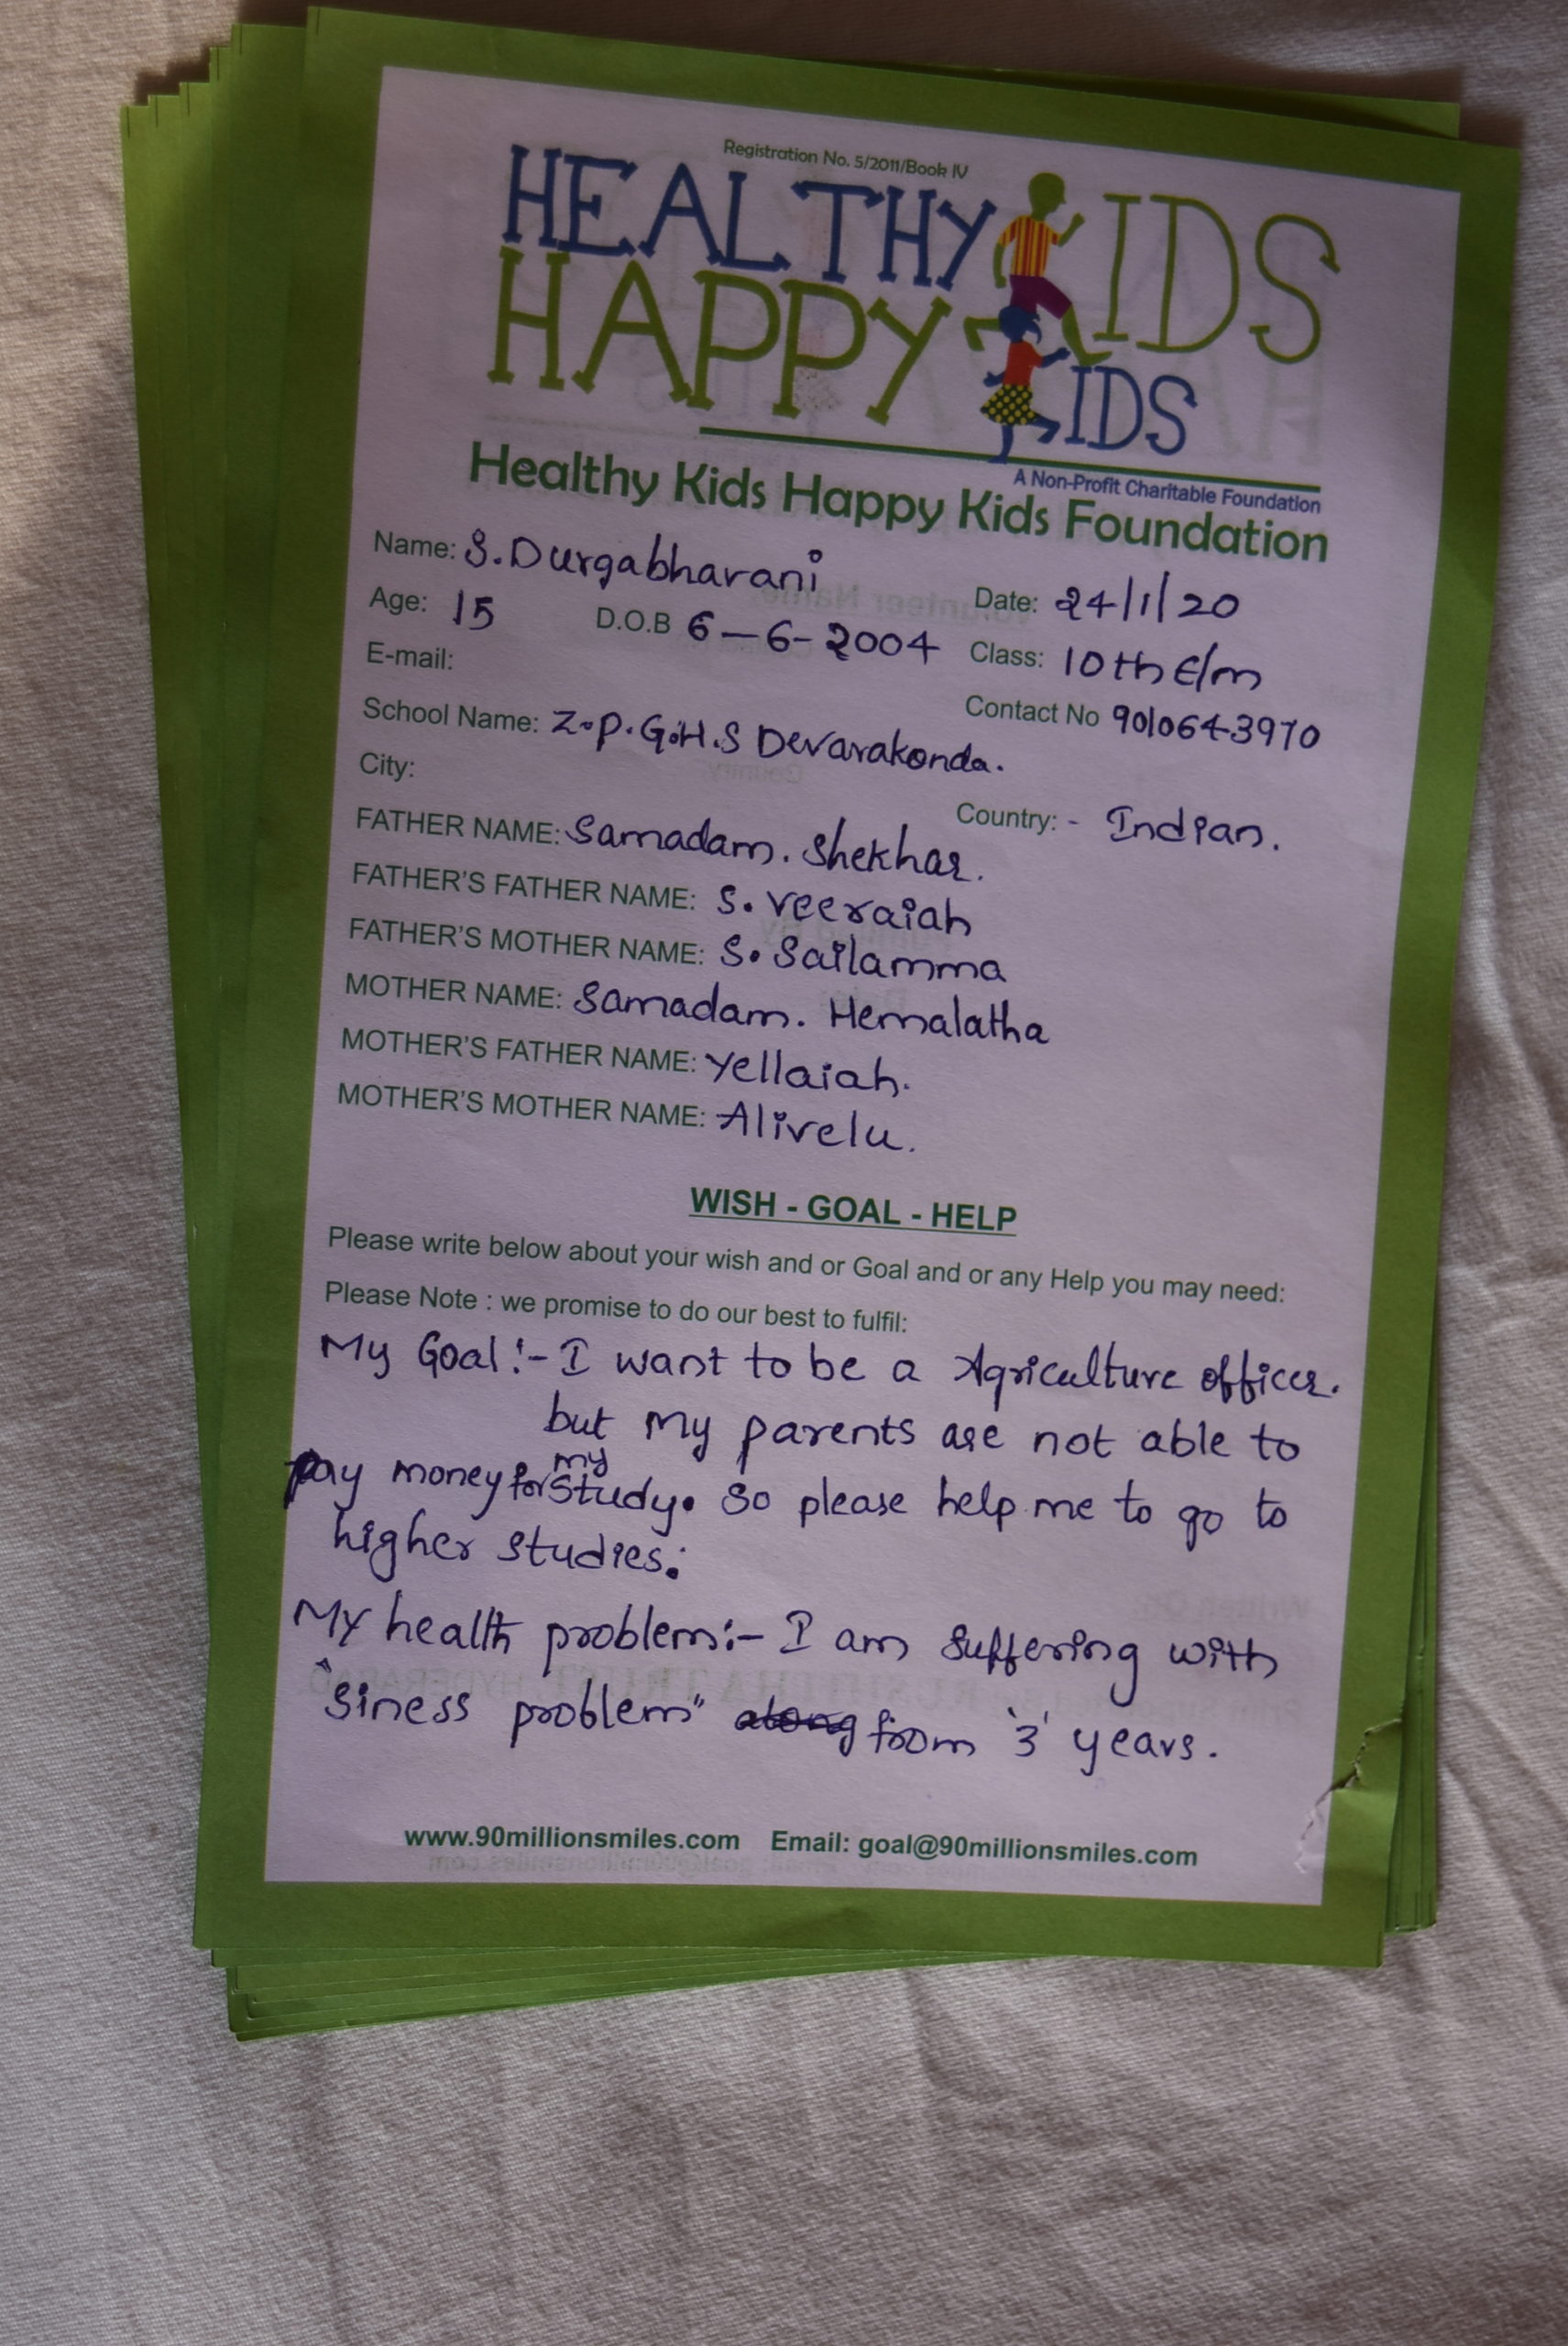 Registration No. 5/2011/Book IV
HEALTHY KIDS
HAPPY KIDS
A Non-Profit Charitable Foundation
Healthy Kids Happy Kids Foundation
Name: S. Durgabhavani Date: 24/1/20
Age: 15 D.O.B 6-6-2004 Class: 10th E/m
E-mail: Contact No 9010643970
School Name: Z.P.G.H.S Devarakonda.
City: Country: - Indian.
FATHER NAME: Samadam. Shekhar.
FATHER'S FATHER NAME: S. Veeraiah
FATHER'S MOTHER NAME: S. Sailamma
MOTHER NAME: Samadam. Hemalatha
MOTHER'S FATHER NAME: Yellaiah.
MOTHER'S MOTHER NAME: Alivelu.
WISH - GOAL - HELP
Please write below about your wish and or Goal and or any Help you may need:
Please Note : we promise to do our best to fulfil:
My Goal:- I want to be a Agriculture officer.
but my parents are not able to
pay money for my study. So please help me to go to
higher studies.
My health problem:- I am suffering with
"siness problem" from '3' years.
www.90millionsmiles.com Email: goal@90millionsmiles.com